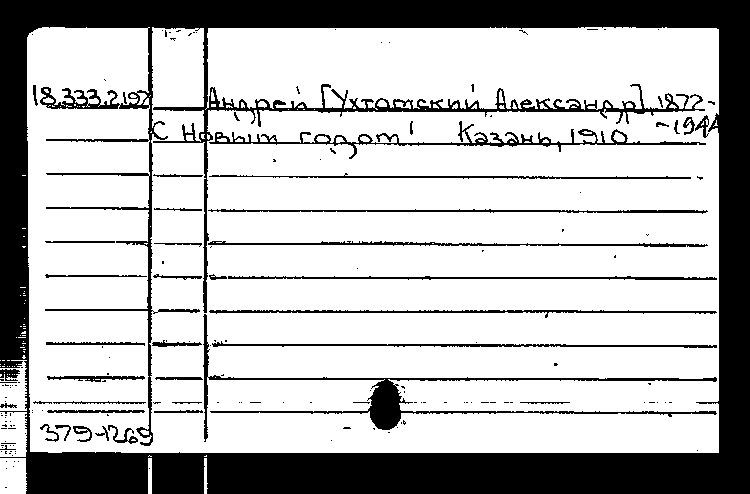 18.333.2.197 Андрей [Ухтомский, Александр], 1872-
-1944
С Новым годом! Казань, 1910.
379-1269